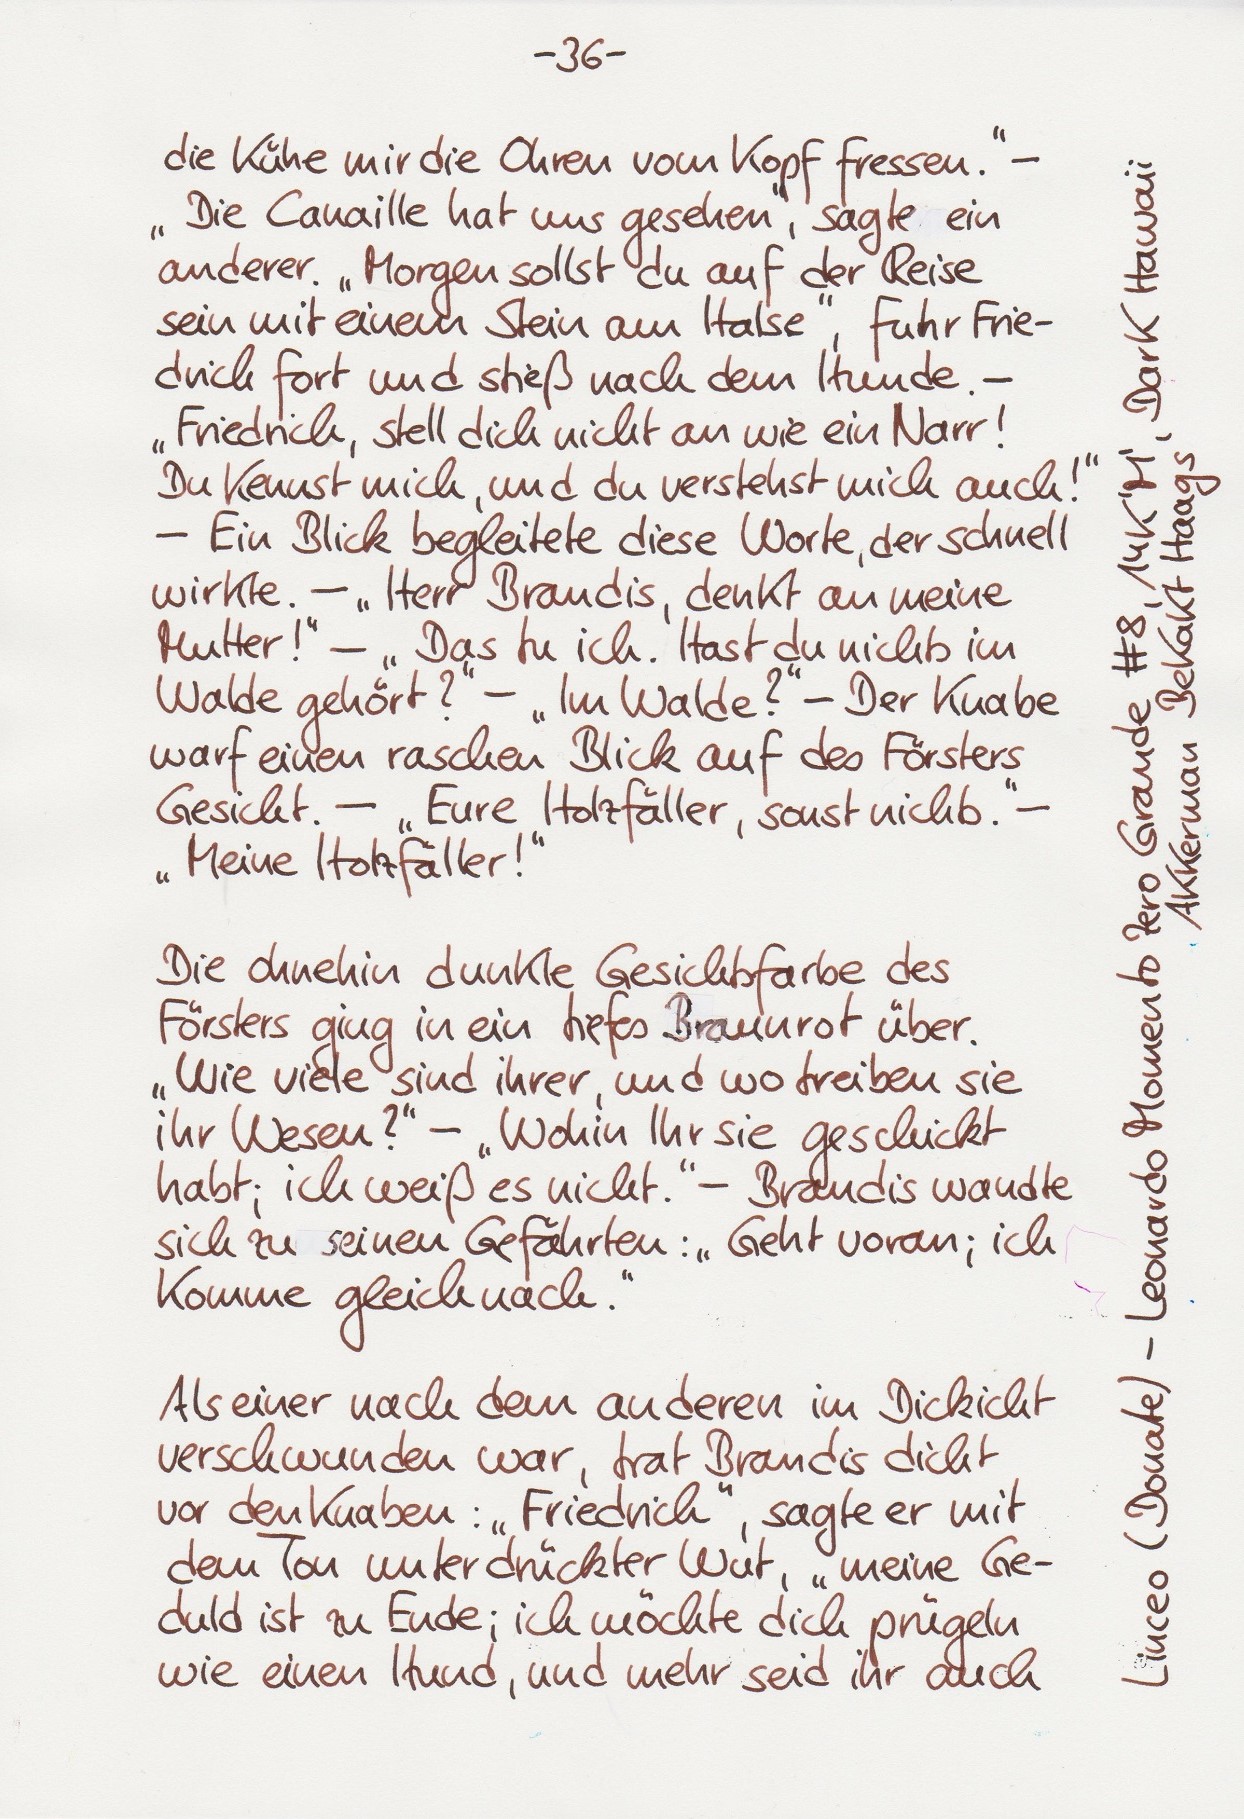 -36-
die Kühe mir die Ohren vom Kopf fressen." –
„Die Canaille hat uns gesehen", sagte ein
anderer. „Morgen sollst du auf der Reise
sein mit einem Stein am Halse", fuhr Frie-
drich fort und stieß nach dem Hunde. –
„Friedrich, stell dich nicht an wie ein Narr!
Du kennst mich, und du verstehst mich auch!"
– Ein Blick begleitete diese Worte, der schnell
wirkte. – „Herr Brandis, denkt an meine
Mutter!" – „Das tu ich. Hast du nichts im
Walde gehört?" – „Im Walde?" – Der Knabe
warf einen raschen Blick auf des Försters
Gesicht. – „Eure Holzfäller, sonst nichts." –
„Meine Holzfäller!"
Die ohnehin dunkle Gesichtsfarbe des
Försters ging in ein tiefes Braunrot über.
„Wie viele sind ihrer, und wo treiben sie
ihr Wesen?" – „Wohin Ihr sie geschickt
habt; ich weiß es nicht." – Brandis wandte
sich zu seinen Gefährten: „Geht voran; ich
komme gleich nach."
Als einer nach dem anderen im Dickicht
verschwunden war, trat Brandis dicht
vor den Knaben: „Friedrich", sagte er mit
dem Ton unterdrückter Wut, „meine Ge-
duld ist zu Ende; ich möchte dich prügeln
wie einen Hund, und mehr seid ihr auch
Linceo (Donate) – Leonardo Momento Zero Grande #8, 14K'M', Dark Hawaii
Akkerman Bekakt Haags